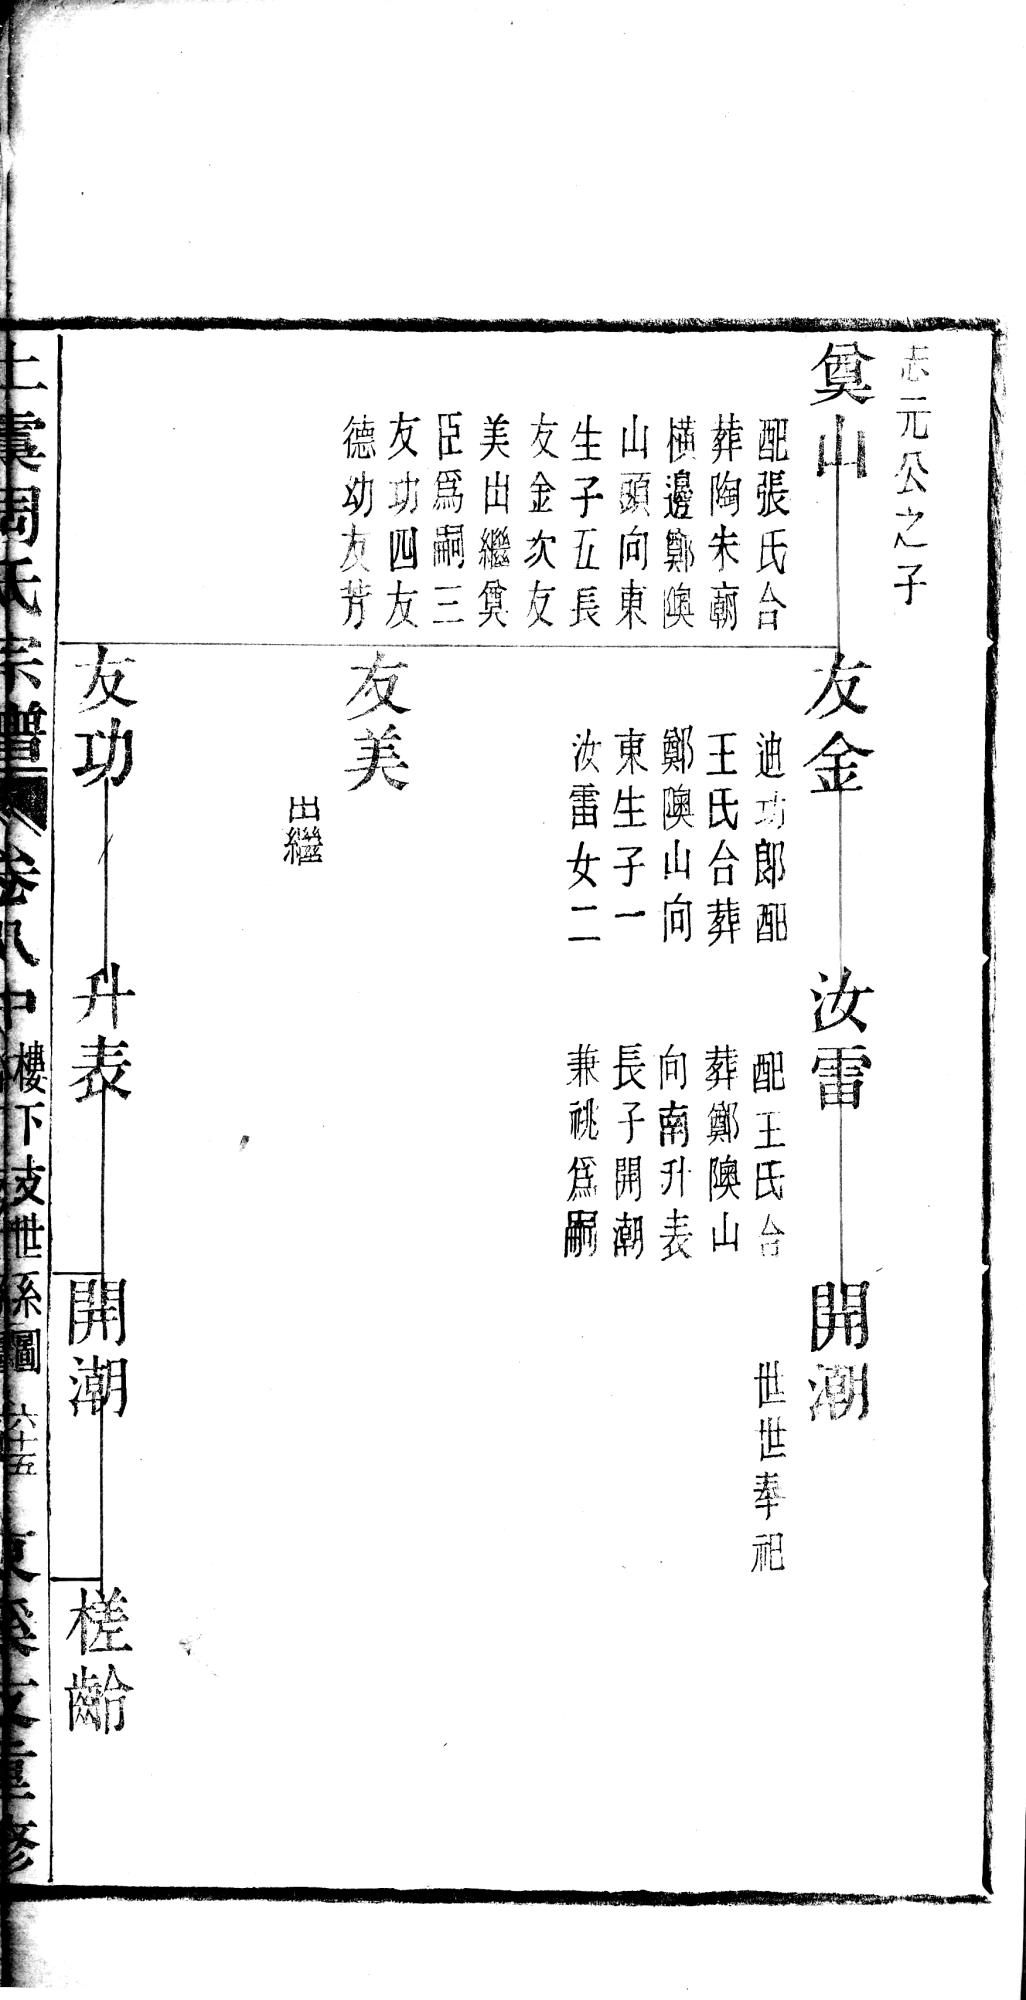 志元公之子
奠山
配張氏合
葬陶朱廟
橫邊鄭隩
山頭向東
生子五長
友金次友
美出繼奠
臣爲嗣三
友功四友
德幼友芳
友金
迪功郎配
王氏合葬
鄭隩山向
東生子一
汝雷女二
汝雷
配王氏合
葬鄭隩山
向南升表
長子開潮
兼祧爲嗣
開潮
世世奉祀
友美
出繼
友功
升表
開潮
槎齡
上虞周氏宗譜
卷八中
樓下支世系圖
六十五
重修